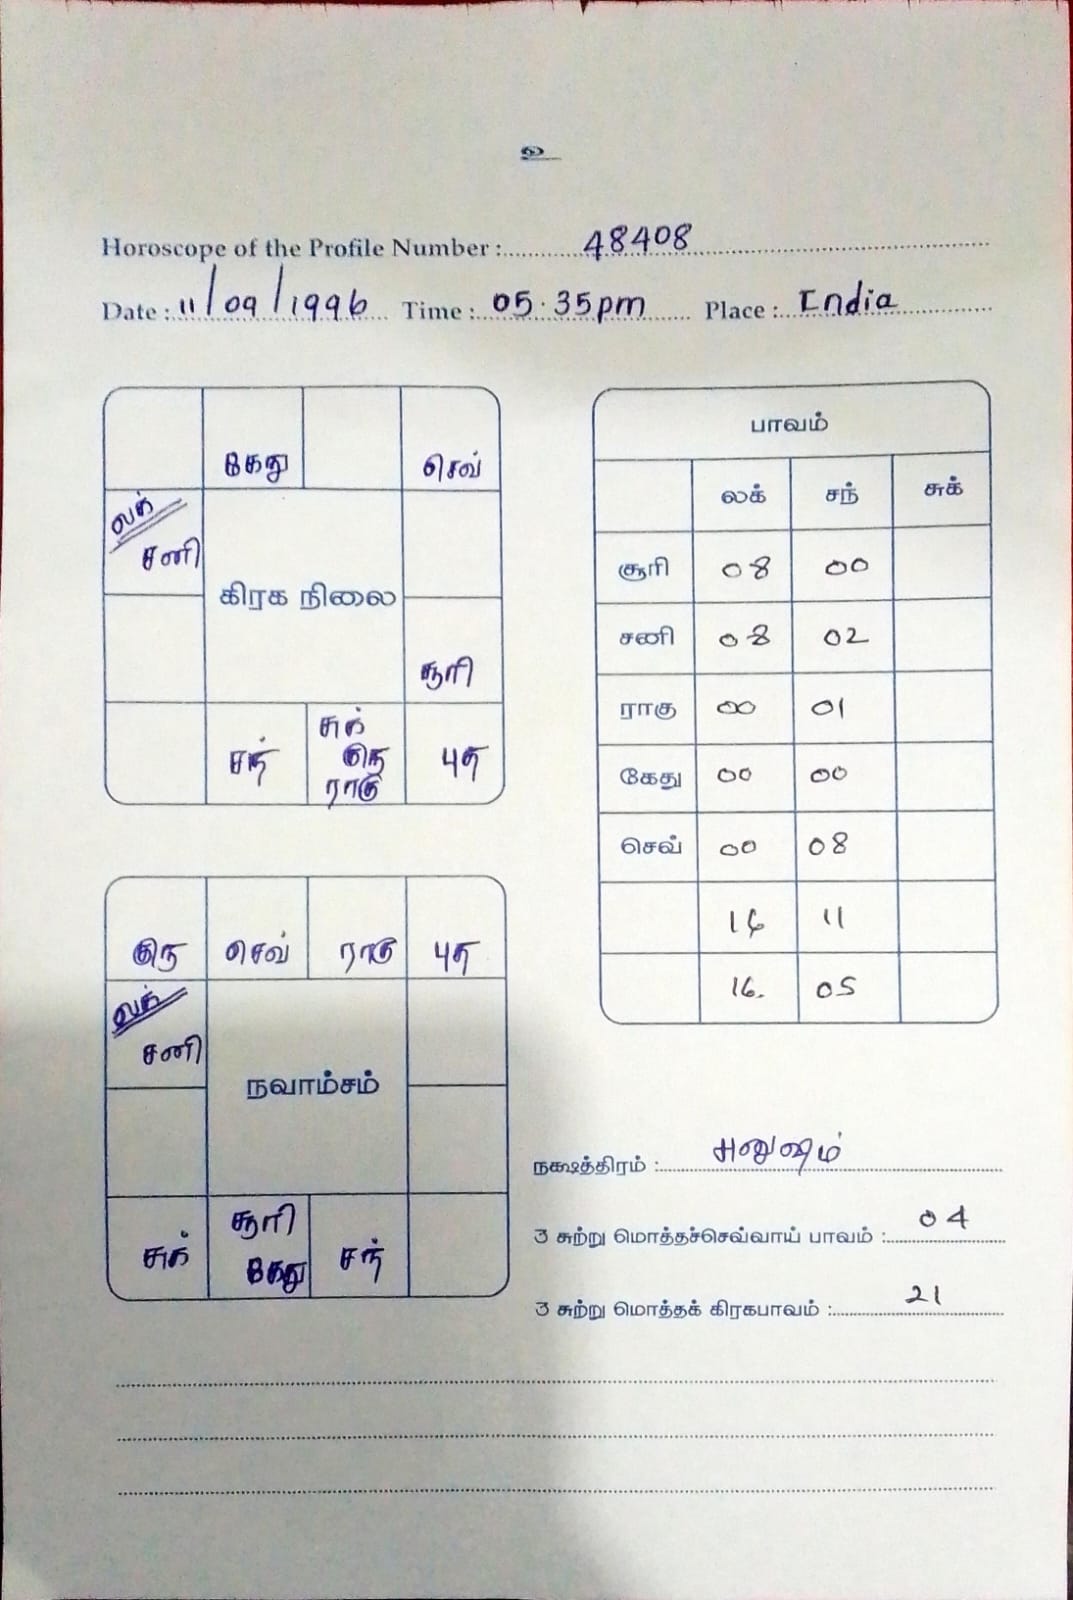 உ
Horoscope of the Profile Number : 48408
Date : 11/09/1996 Time : 05.35pm Place : India
கேது செவ்
லக்
சனி
கிரக நிலை
சூரி
சந் சுக் குரு ராகு புத
பாவம்
லக் சந் சுக்
சூரி 08 00
சனி 08 02
ராகு 00 01
கேது 00 00
செவ் 00 08
16 11
16. 05
குரு செவ் ராகு புத
லக்
சனி
நவாம்சம்
சுக் சூரி கேது சந்
நக்ஷத்திரம் : அனுஷம்
3 சுற்று மொத்தச்செவ்வாய் பாவம் : 04
3 சுற்று மொத்தக் கிரகபாவம் : 21